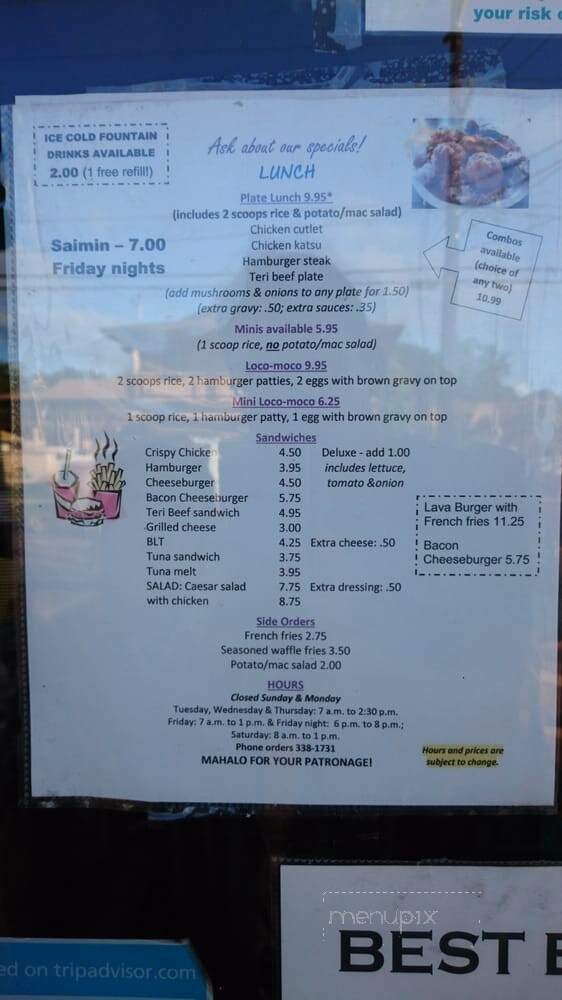 your risk
ICE COLD FOUNTAIN
DRINKS AVAILABLE
2.00 (1 free refill!)
Ask about our specials!
LUNCH
Plate Lunch 9.95*
(includes 2 scoops rice & potato/mac salad)
Chicken cutlet
Chicken katsu
Hamburger steak
Teri beef plate
(add mushrooms & onions to any plate for 1.50)
(extra gravy: .50; extra sauces: .35)
Saimin – 7.00
Friday nights
Combos
available
(choice of
any two)
10.99
Minis available 5.95
(1 scoop rice, no potato/mac salad)
Loco-moco 9.95
2 scoops rice, 2 hamburger patties, 2 eggs with brown gravy on top
Mini Loco-moco 6.25
1 scoop rice, 1 hamburger patty, 1 egg with brown gravy on top
Sandwiches
Crispy Chicken 4.50 Deluxe - add 1.00
Hamburger 3.95 includes lettuce,
Cheeseburger 4.50 tomato &onion
Bacon Cheeseburger 5.75
Teri Beef sandwich 4.95
Grilled cheese 3.00
BLT 4.25 Extra cheese: .50
Tuna sandwich 3.75
Tuna melt 3.95
SALAD: Caesar salad 7.75 Extra dressing: .50
with chicken 8.75
Lava Burger with
French fries 11.25
Bacon
Cheeseburger 5.75
Side Orders
French fries 2.75
Seasoned waffle fries 3.50
Potato/mac salad 2.00
HOURS
Closed Sunday & Monday
Tuesday, Wednesday & Thursday: 7 a.m. to 2:30 p.m.
Friday: 7 a.m. to 1 p.m. & Friday night: 6 p.m. to 8 p.m.;
Saturday: 8 a.m. to 1 p.m.
Phone orders 338-1731
MAHALO FOR YOUR PATRONAGE!
Hours and prices are
subject to change.
menupix
BEST
ed on tripadvisor.com